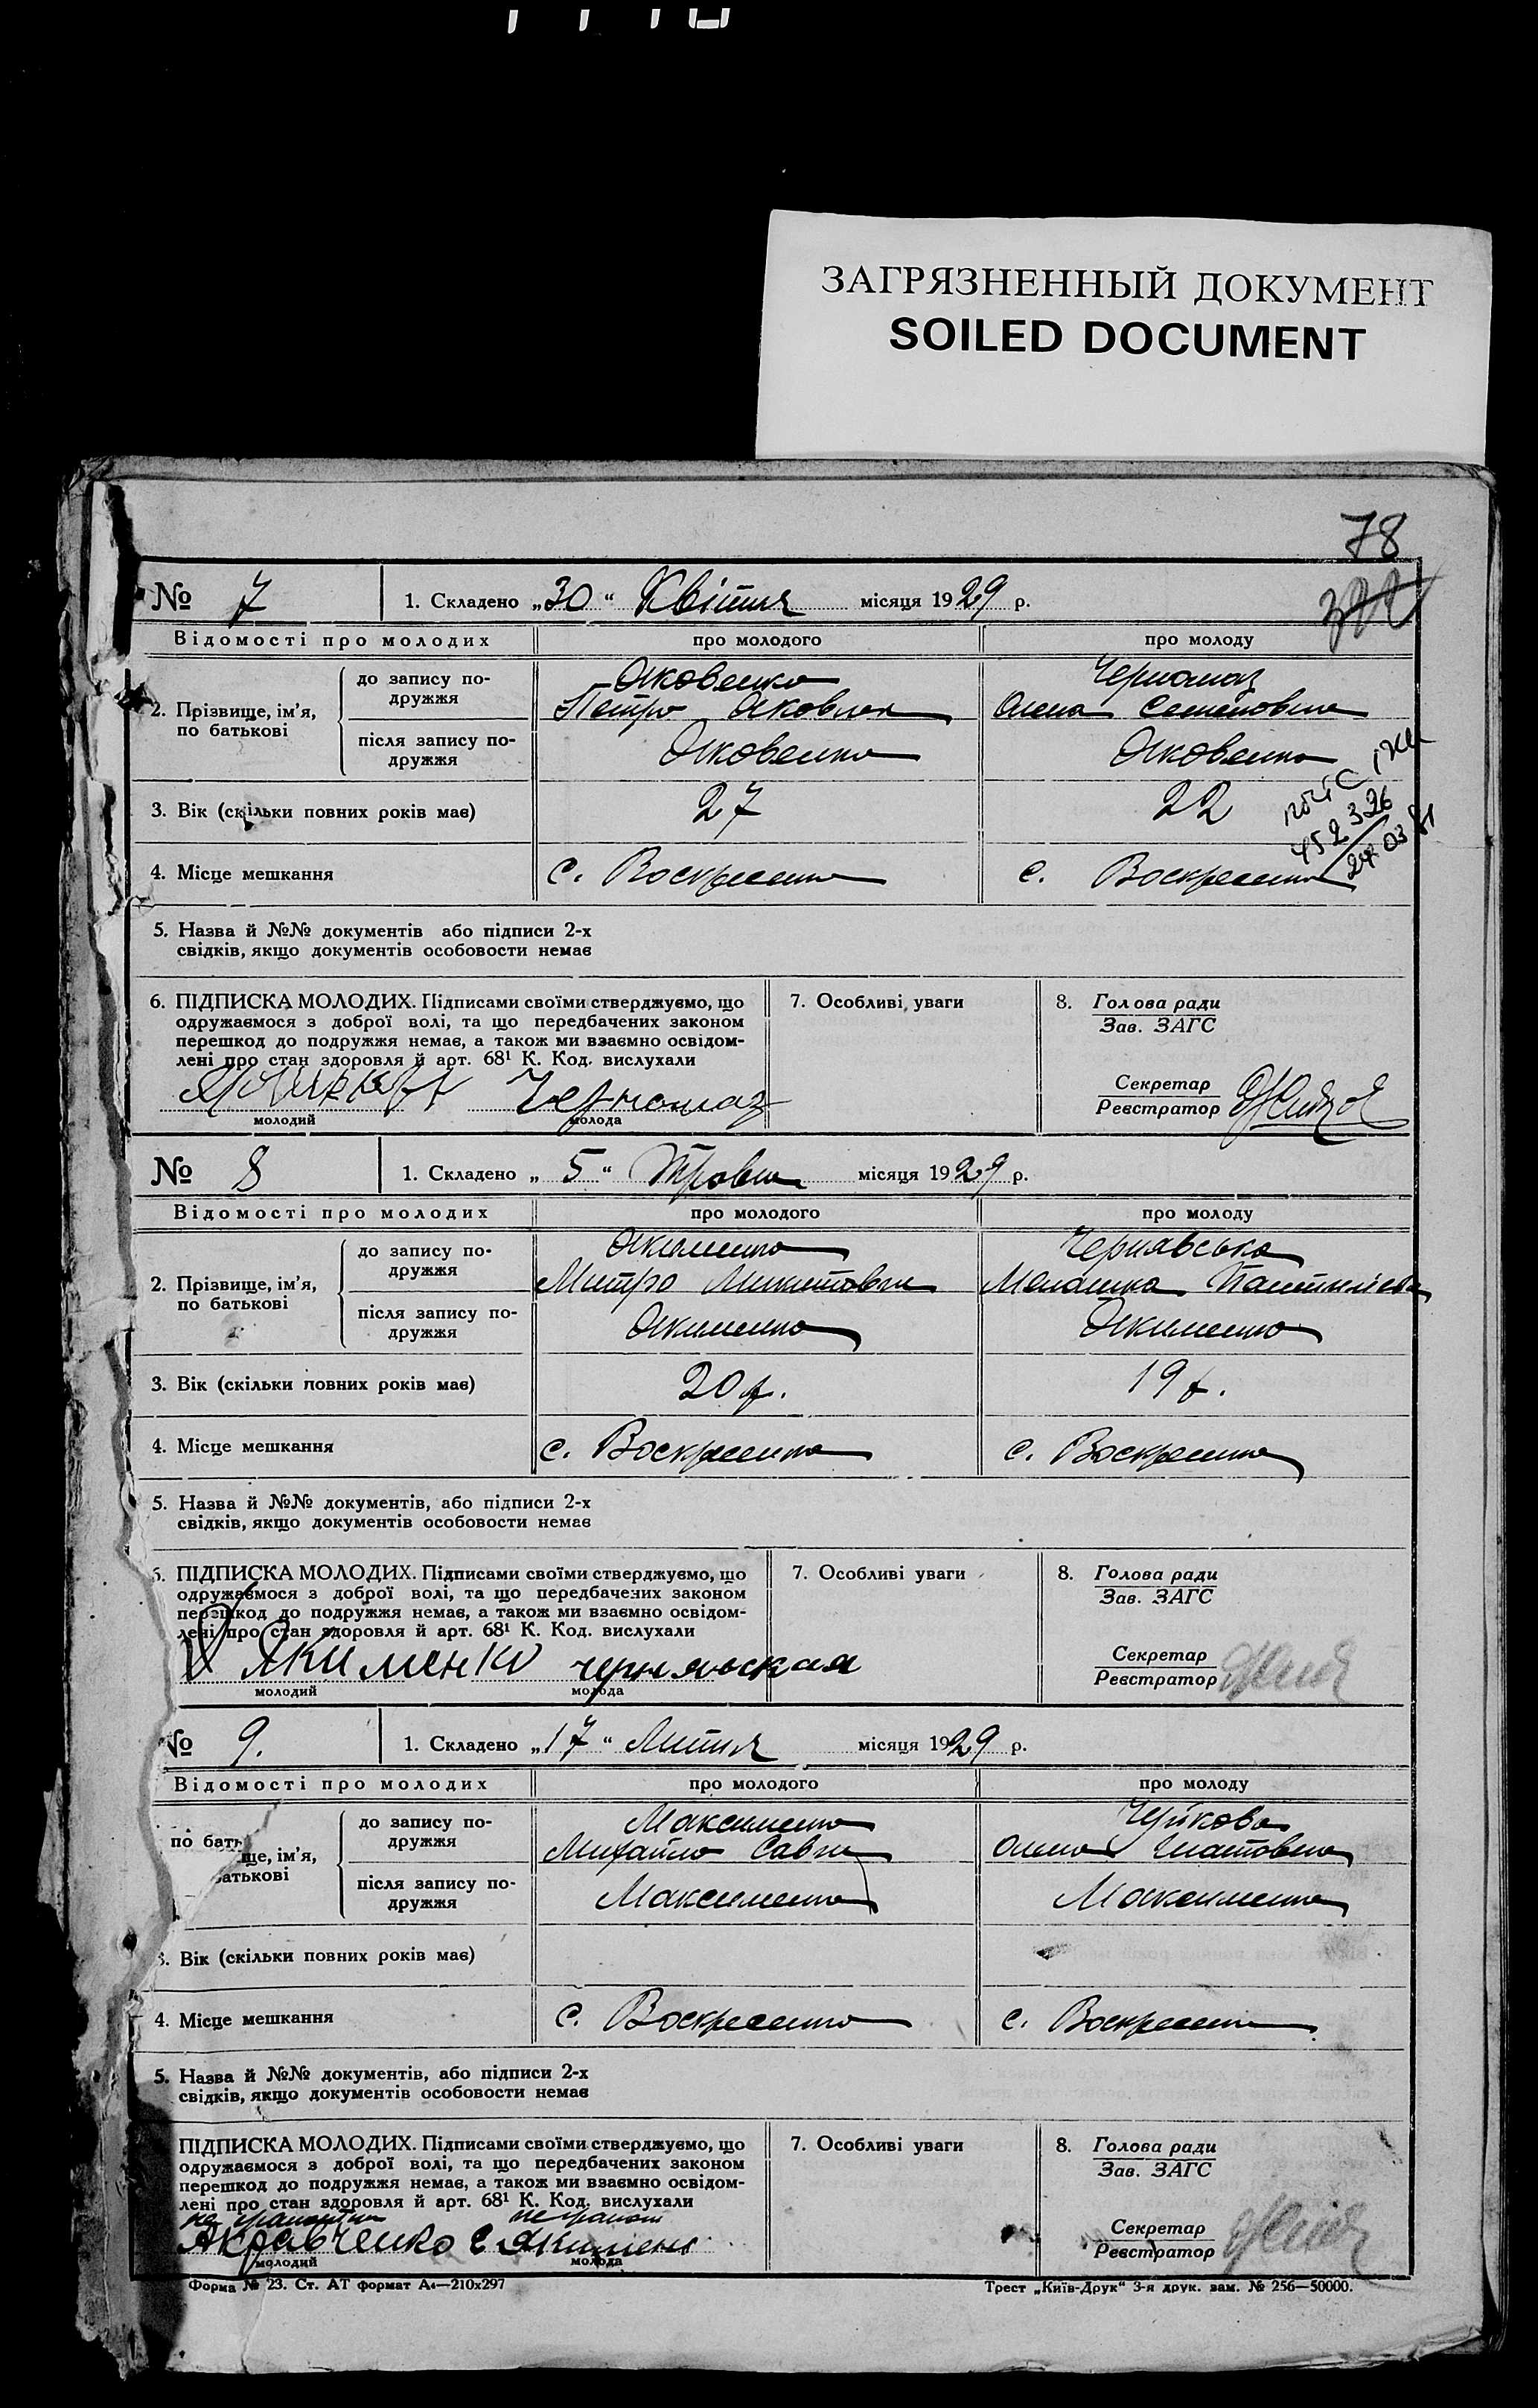 ЗАГРЯЗНЕННЫЙ ДОКУМЕНТ
SOILED DOCUMENT
78
№ 7 1. Складено „30“ Квітня місяця 1929 р.
Відомості про молодих про молодого про молоду
2. Прізвище, ім'я, по батькові
до запису подружжя
Яковенко Черномаз
Петро Яковлев Олена Семеновна
після запису по-
дружжя
Яковенко Яковенко
3. Вік (скільки повних років має) 27 22
452326
4. Місце мешкання с. Воскресенка с. Воскресенка
5. Назва й №№ документів або підписи 2-х
свідків, якщо документів особовости немає
6. ПІДПИСКА МОЛОДИХ. Підписами своїми стверджуємо, що
одружаємося з доброї волі, та що передбачених законом
перешкод до подружжя немає, а також ми взаємно освідом-
лені про стан здоровля й арт. 68¹ К. Код. вислухали
Черномаз
молодий молода
7. Особливі уваги
8. Голова ради
Зав. ЗАГС
Секретар
Реєстратор
№ 8 1. Складено „5“ Травня місяця 1929 р.
Відомості про молодих про молодого про молоду
2. Прізвище, ім'я,
по батькові
до запису по-
дружжя
Якименко Чернявська
Митро Микитович Малашка
після запису по-
дружжя
Якименко Якименко
3. Вік (скільки повних років має) 20 р. 19 р.
4. Місце мешкання с. Воскресенка с. Воскресенка
5. Назва й №№ документів, або підписи 2-х
свідків, якщо документів особовости немає
6. ПІДПИСКА МОЛОДИХ. Підписами своїми стверджуємо, що
одружаємося з доброї волі, та що передбачених законом
перешкод до подружжя немає, а також ми взаємно освідом-
лені про стан здоровля й арт. 68¹ К. Код. вислухали
Якименко чернявская
молодий молода
7. Особливі уваги
8. Голова ради
Зав. ЗАГС
Секретар
Реєстратор
№ 9. 1. Складено „17“ Липня місяця 1929 р.
Відомості про молодих про молодого про молоду
по бать
ще, ім'я,
батькові
до запису по-
дружжя
Максименко
Михайло Савич
після запису по-
дружжя
Максименко Максименко
3. Вік (скільки повних років має)
4. Місце мешкання с. Воскресенка с. Воскресенка
5. Назва й №№ документів, або підписи 2-х
свідків, якщо документів особовости немає
ПІДПИСКА МОЛОДИХ. Підписами своїми стверджуємо, що
одружаємося з доброї волі, та що передбачених законом
перешкод до подружжя немає, а також ми взаємно освідом-
лені про стан здоровля й арт. 68¹ К. Код. вислухали
Акравченко
молодий молода
7. Особливі уваги
8. Голова ради
Зав. ЗАГС
Секретар
Реєстратор
Форма № 23. Ст. АТ формат А₄—210х297 Трест „Київ-Друк“ 3-я друк. зам. № 256—50000.